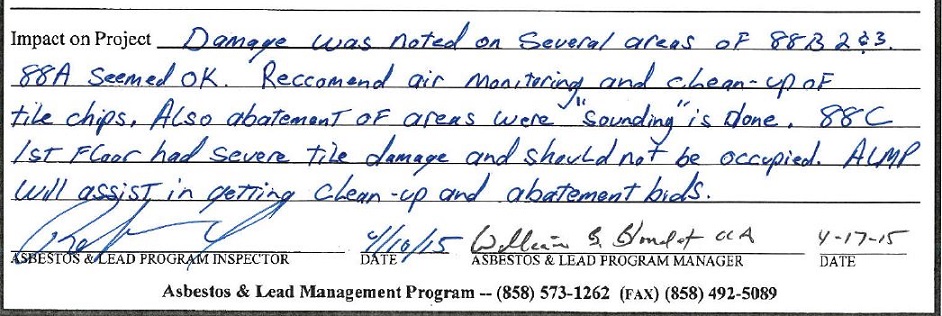 Impact on Project Damage was noted on Several areas of 88B 2&3.
88A seemed OK. Reccomend air monitoring and clean-up of
tile chips. Also abatement of areas were "sounding" is done. 88C
1st Floor had severe tile damage and should not be occupied. ALMP
will assist in getting clean-up and abatement bids.
4/10/15 William 4-17-15
ASBESTOS & LEAD PROGRAM INSPECTOR DATE ASBESTOS & LEAD PROGRAM MANAGER DATE
Asbestos & Lead Management Program -- (858) 573-1262 (FAX) (858) 492-5089